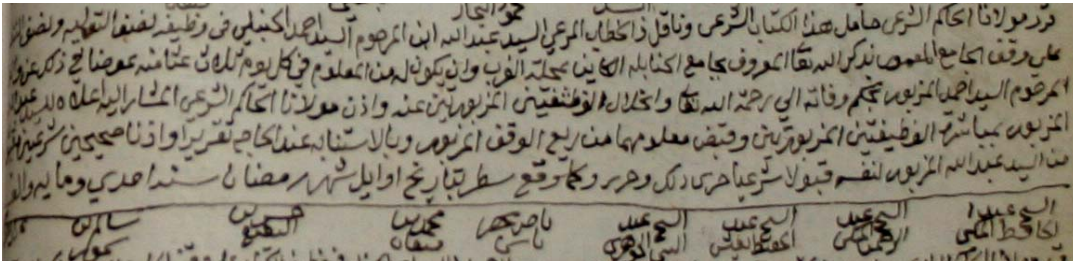 قرر مولانا الحاكم الشرعي حامل هذا الكتاب الشرعي وناقل ذا الخطاب المرعي السيد عبد الله ابن المرحوم السيد احمد الحنبلي في وظيفة نصف التولية ونصف
على وقف الجامع المعمور بذكر الله تعالى المعروف بجامع الحنابلة الكاين بمحلة الغرب وان يكون له من المعلوم في كل يوم ثلاث عثامنة عوضا في ذلك عن
المرحوم السيد احمد المزبور بحكم وفاته الي رحمة الله تعالى وانحلال الوظيفتين المزبورتين عنه واذن مولانا الحاكم الشرعي المشار اليه اعلاه للسيد عبد الله
المزبور بمباشرة الوظيفتين المزبورتين وقبض معلومهما من ريع الوقف المزبور وبالاستنابة عند الحاجة تقريرا واذنا صحيحين شرعيين
من السيد عبد الله المزبور لنفسه قبولا شرعيا جرى ذلك وحرر وكما وقع سطر بتاريخ اوايل شهر رمضان سنة احدي وماية والف
الشيخ عبد الشيخ عبد الشيخ عبد الشيخ عبد ناصر محمد بن حسين بن سالم بن
الحافظ المكي الرحمن المكي